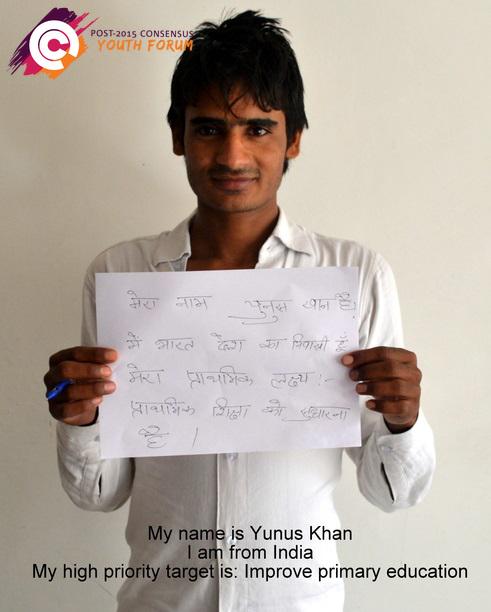 POST-2015 CONSENSUS
YOUTH FORUM
मेरा नाम युनुस खान है।
मैं भारत देश का निवासी हूँ
मेरा प्राथमिक लक्ष्य :-
प्राथमिक शिक्षा को सुधारना
है ।
My name is Yunus Khan
I am from India
My high priority target is: Improve primary education